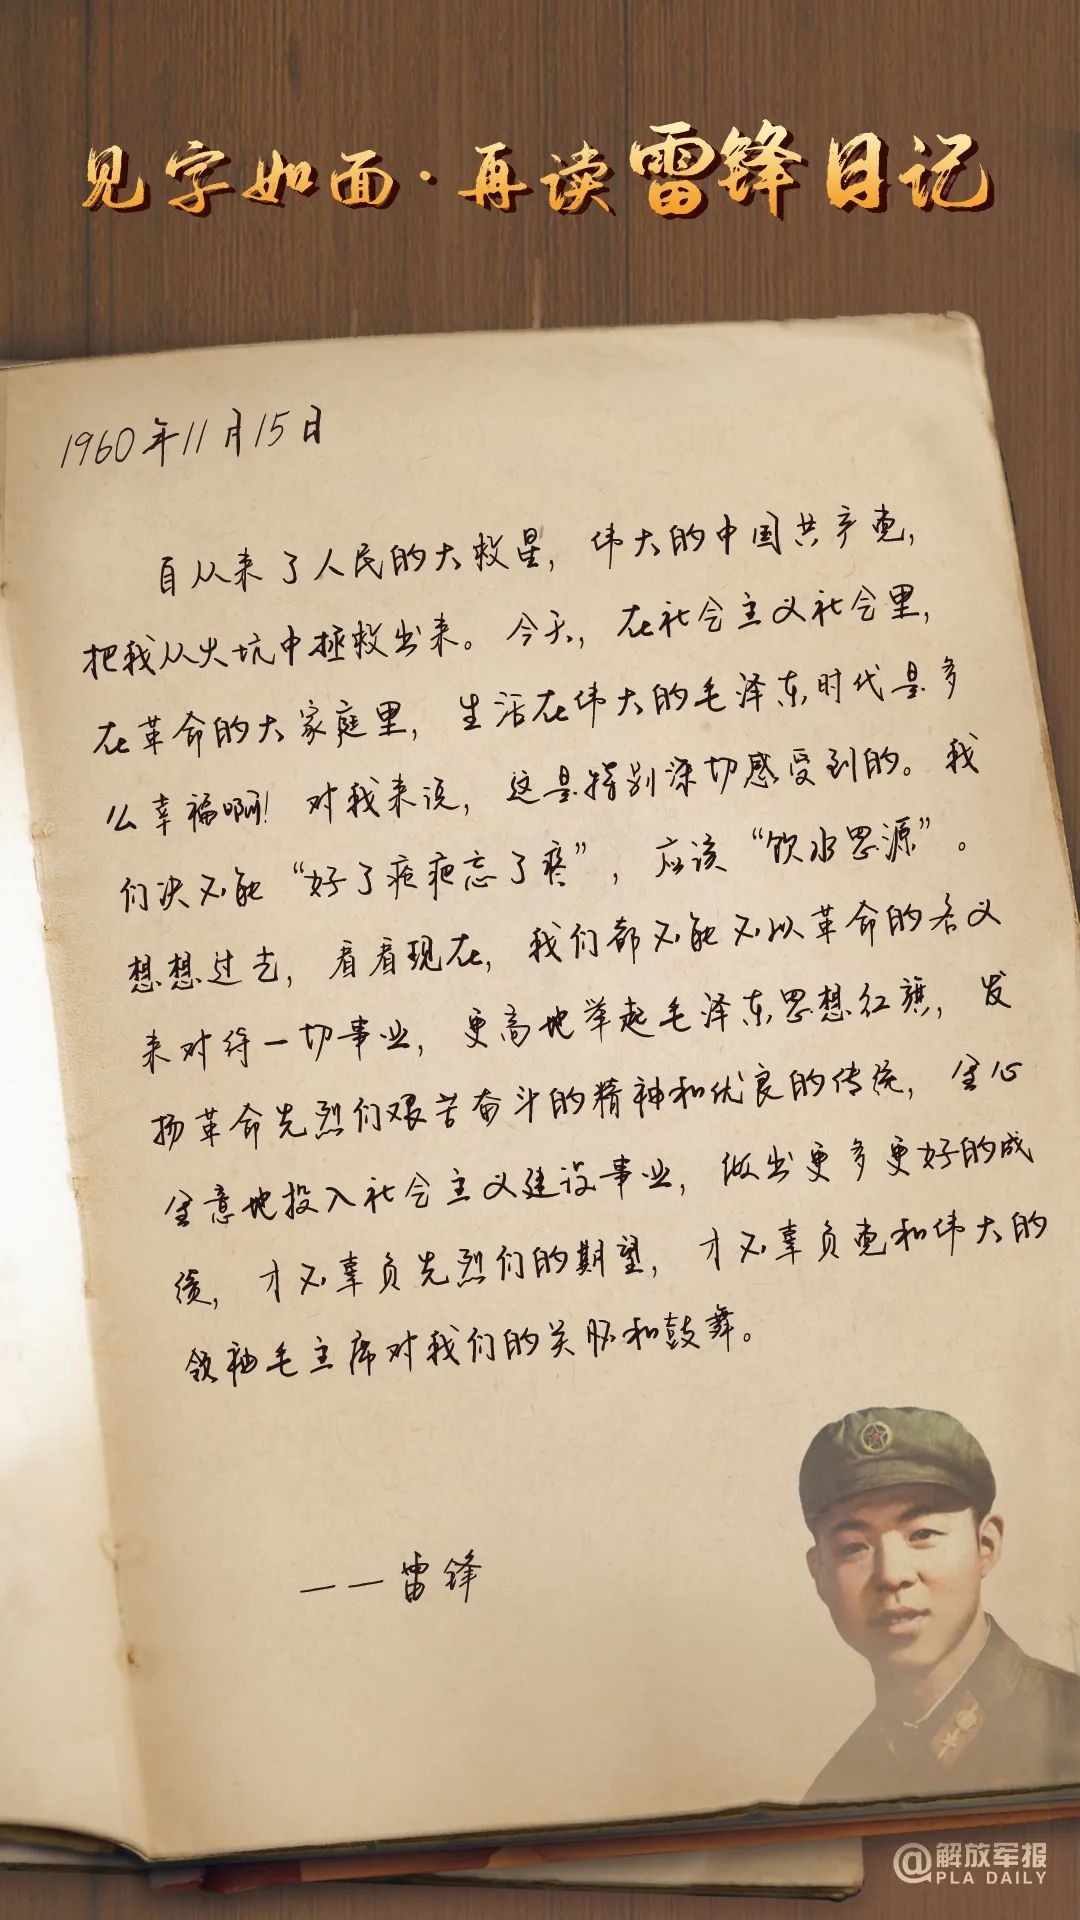 见字如面·再读雷锋日记
1960年11月15日
自从来了人民的大救星，伟大的中国共产党，
把我从火坑中拯救出来。今天，在社会主义社会里，
在革命的大家庭里，生活在伟大的毛泽东时代是多
么幸福啊！对我来说，这是特别深切感受到的。我
们决不能“好了疮疤忘了疼”，应该“饮水思源”。
想想过去，看看现在，我们都不能不以革命的名义
来对待一切事业，更高地举起毛泽东思想红旗，发
扬革命先烈们艰苦奋斗的精神和优良的传统，全心
全意地投入社会主义建设事业，做出更多更好的成
绩，才不辜负先烈们的期望，才不辜负党和伟大的
领袖毛主席对我们的关怀和鼓舞。
——雷锋
@解放军报
PLA DAILY